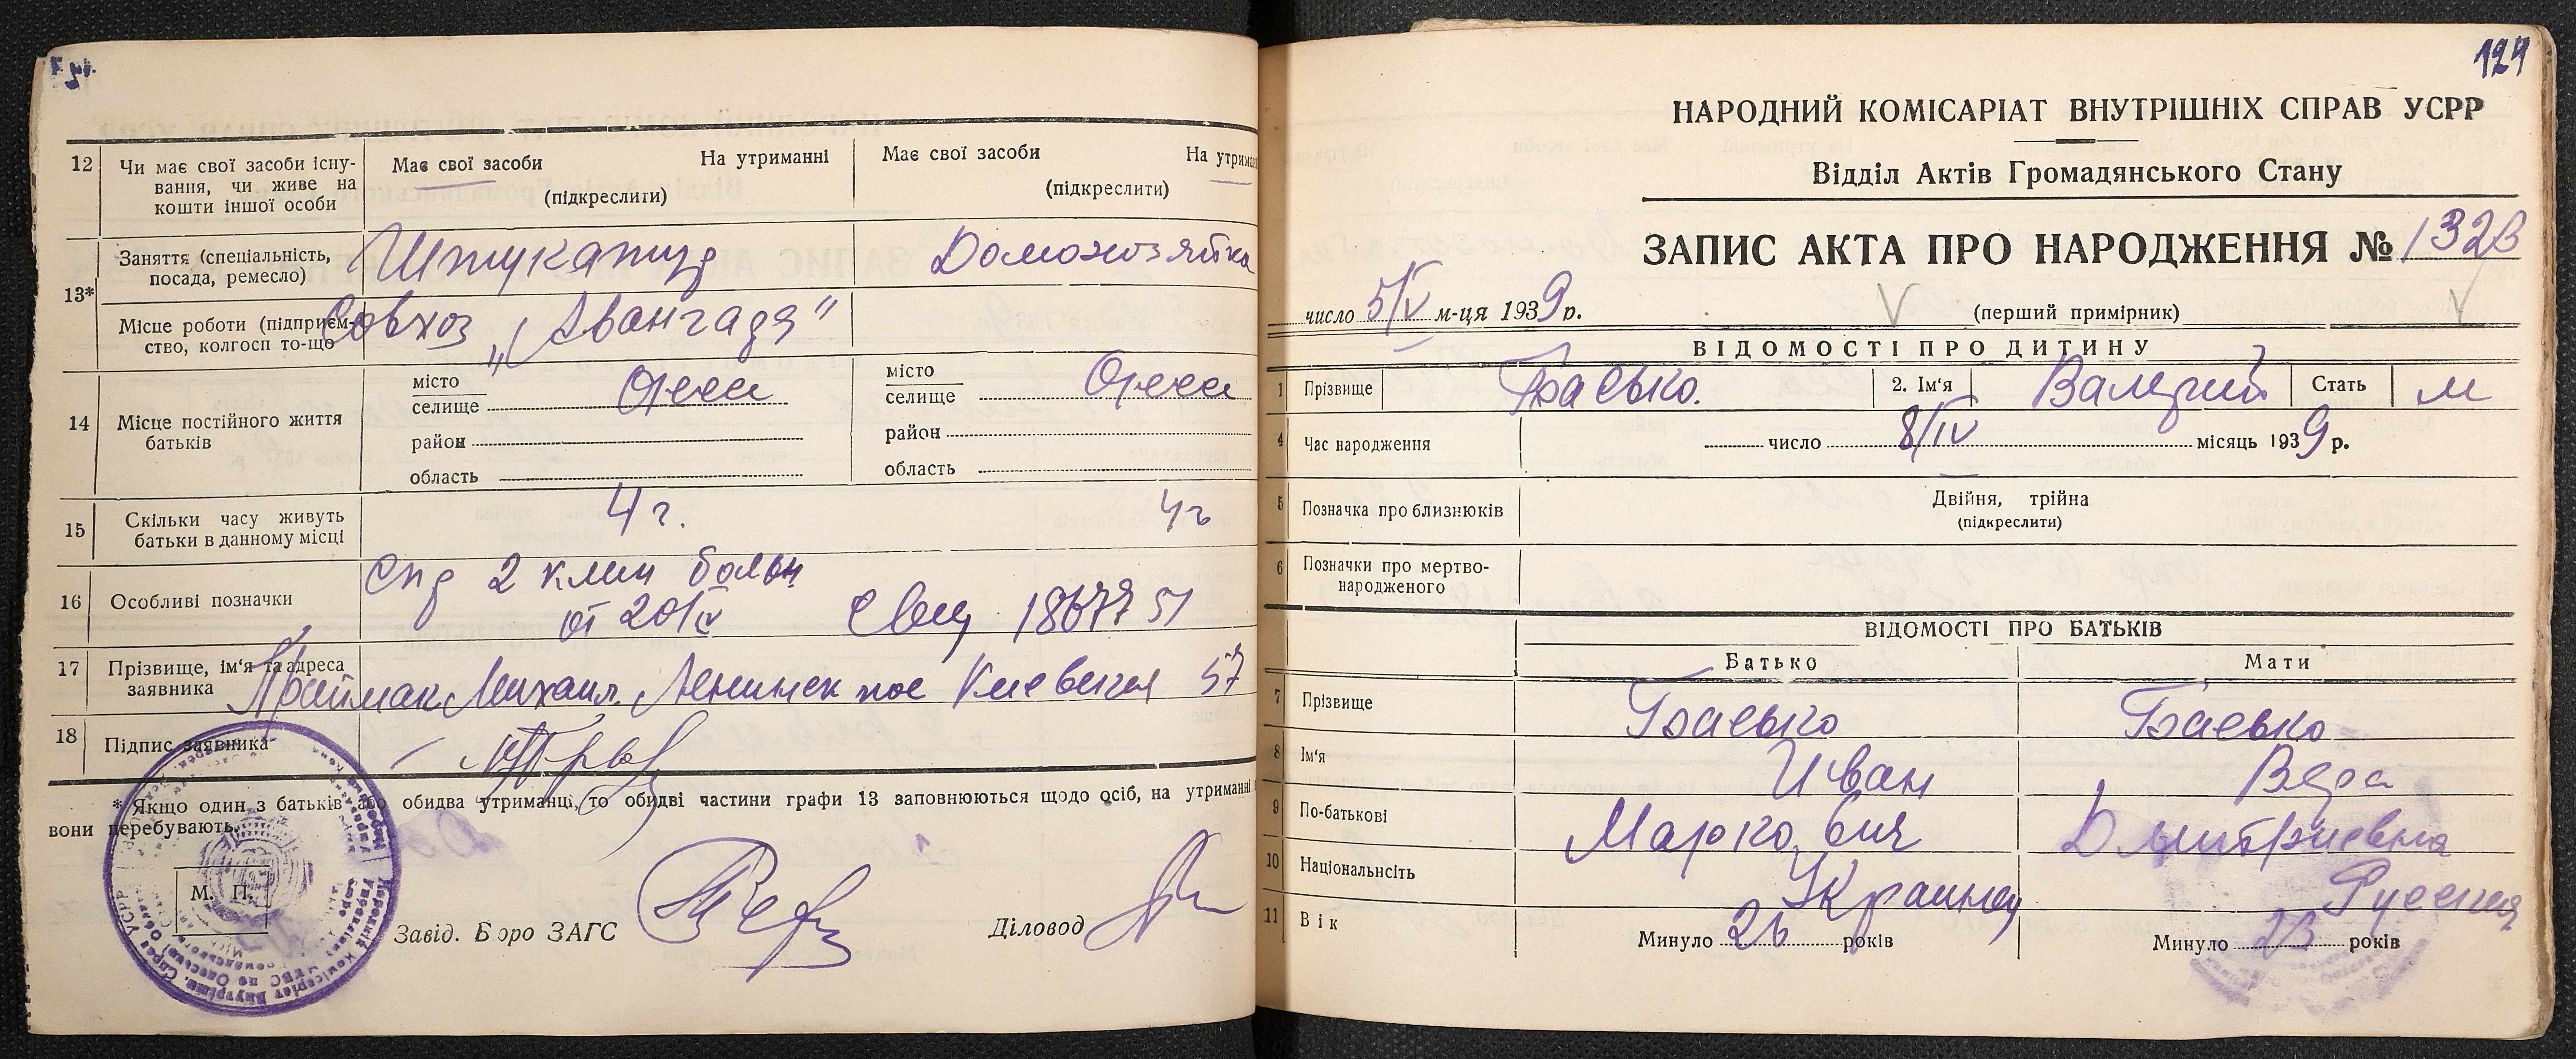 12 Чи має свої засоби існу-
вання, чи живе на
кошти іншої особи
Має свої засоби На утриманні
(підкреслити)
Має свої засоби На утриман
(підкреслити)
13*
Заняття (спеціальність,
посада, ремесло)
Штукатур
Домохозяйка
Місце роботи (підприєм-
ство, колгосп то-що
Совхоз „Авангард"
14 Місце постійного життя
батьків
місто
селище Одесса
район
область
місто
селище Одесса
район
область
15 Скільки часу живуть
батьки в данному місці
4 г.
4 г
16 Особливі позначки
Спр 2 клин больн
от 20/IV
17 Прізвище, ім'я та адреса
заявника
Михаил Ленинск пос Киевская 57
18 Підпис заявника
* Якщо один з батьків або обидва утриманці, то обидві частини графи 13 заповнюються щодо осіб, на утриманні
вони перебувають.
М. П.
Завід. Бюро ЗАГС
Діловод
124
НАРОДНИЙ КОМІСАРІАТ ВНУТРІШНІХ СПРАВ УСРР
Відділ Актів Громадянського Стану
ЗАПИС АКТА ПРО НАРОДЖЕННЯ № 1323
число 5/V м-ця 1939 р.
(перший примірник)
ВІДОМОСТІ ПРО ДИТИНУ
1 Прізвище Басько. 2. Ім'я Валерий Стать м
4 Час народження число 8/IV місяць 1939 р.
5 Позначка про близнюків
Двійня, трійна
(підкреслити)
6 Позначки про мертво-
народженого
ВІДОМОСТІ ПРО БАТЬКІВ
Батько Мати
7 Прізвище Басько Басько
8 Ім'я Иван Вера
9 По-батькові Маркович Дмитриевна
10 Національність Украинец Русская
11 Вік Минуло 26 років Минуло 23 років